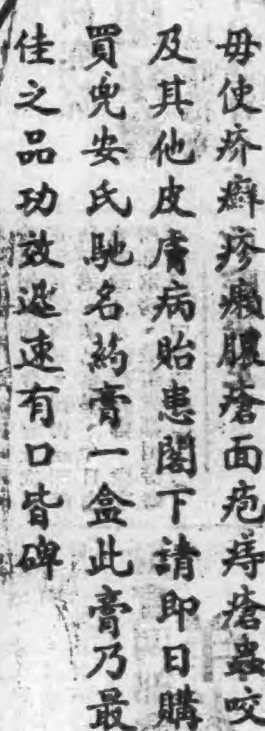 毋使疥癬疹癩膿瘡面疱痔瘡蟲咬
及其他皮膚病貽患閣下請即日購
買兜安氏馳名葯膏一盒此膏乃最
佳之品功效迅速有口皆碑